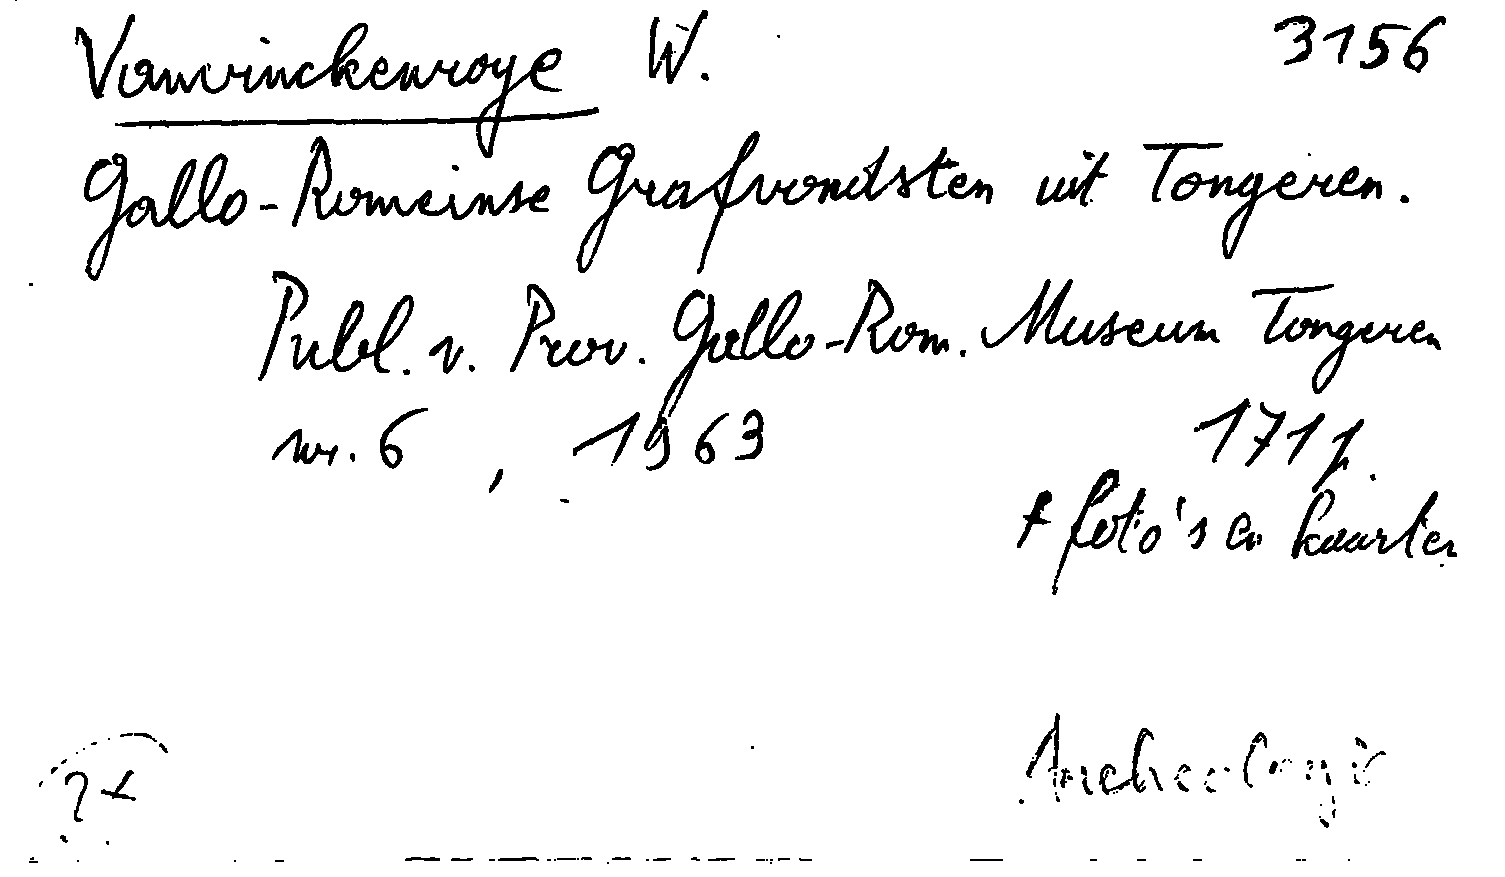 Vanvinckenroye W. 3156
Gallo-Romeinse Grafvondsten uit Tongeren.
Publ. v. Prov. Gallo-Rom. Museum Tongeren
nr. 6 , 1963 171 p.
+ foto's en kaarten
Archeologie